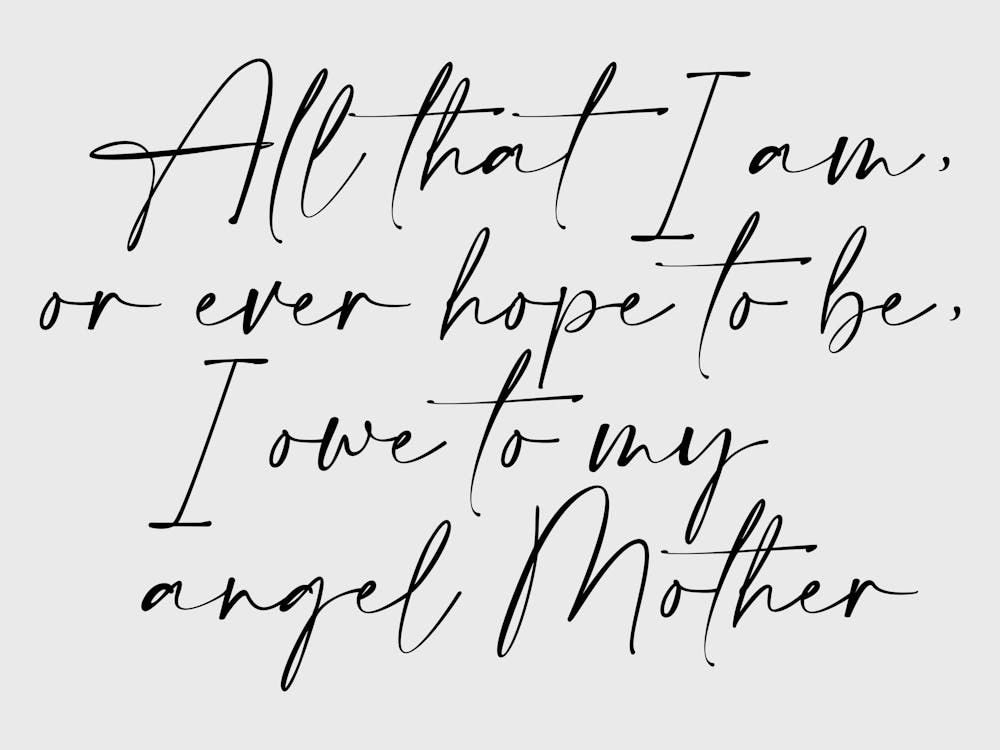 All that I am,
or ever hope to be,
I owe to my
angel Mother